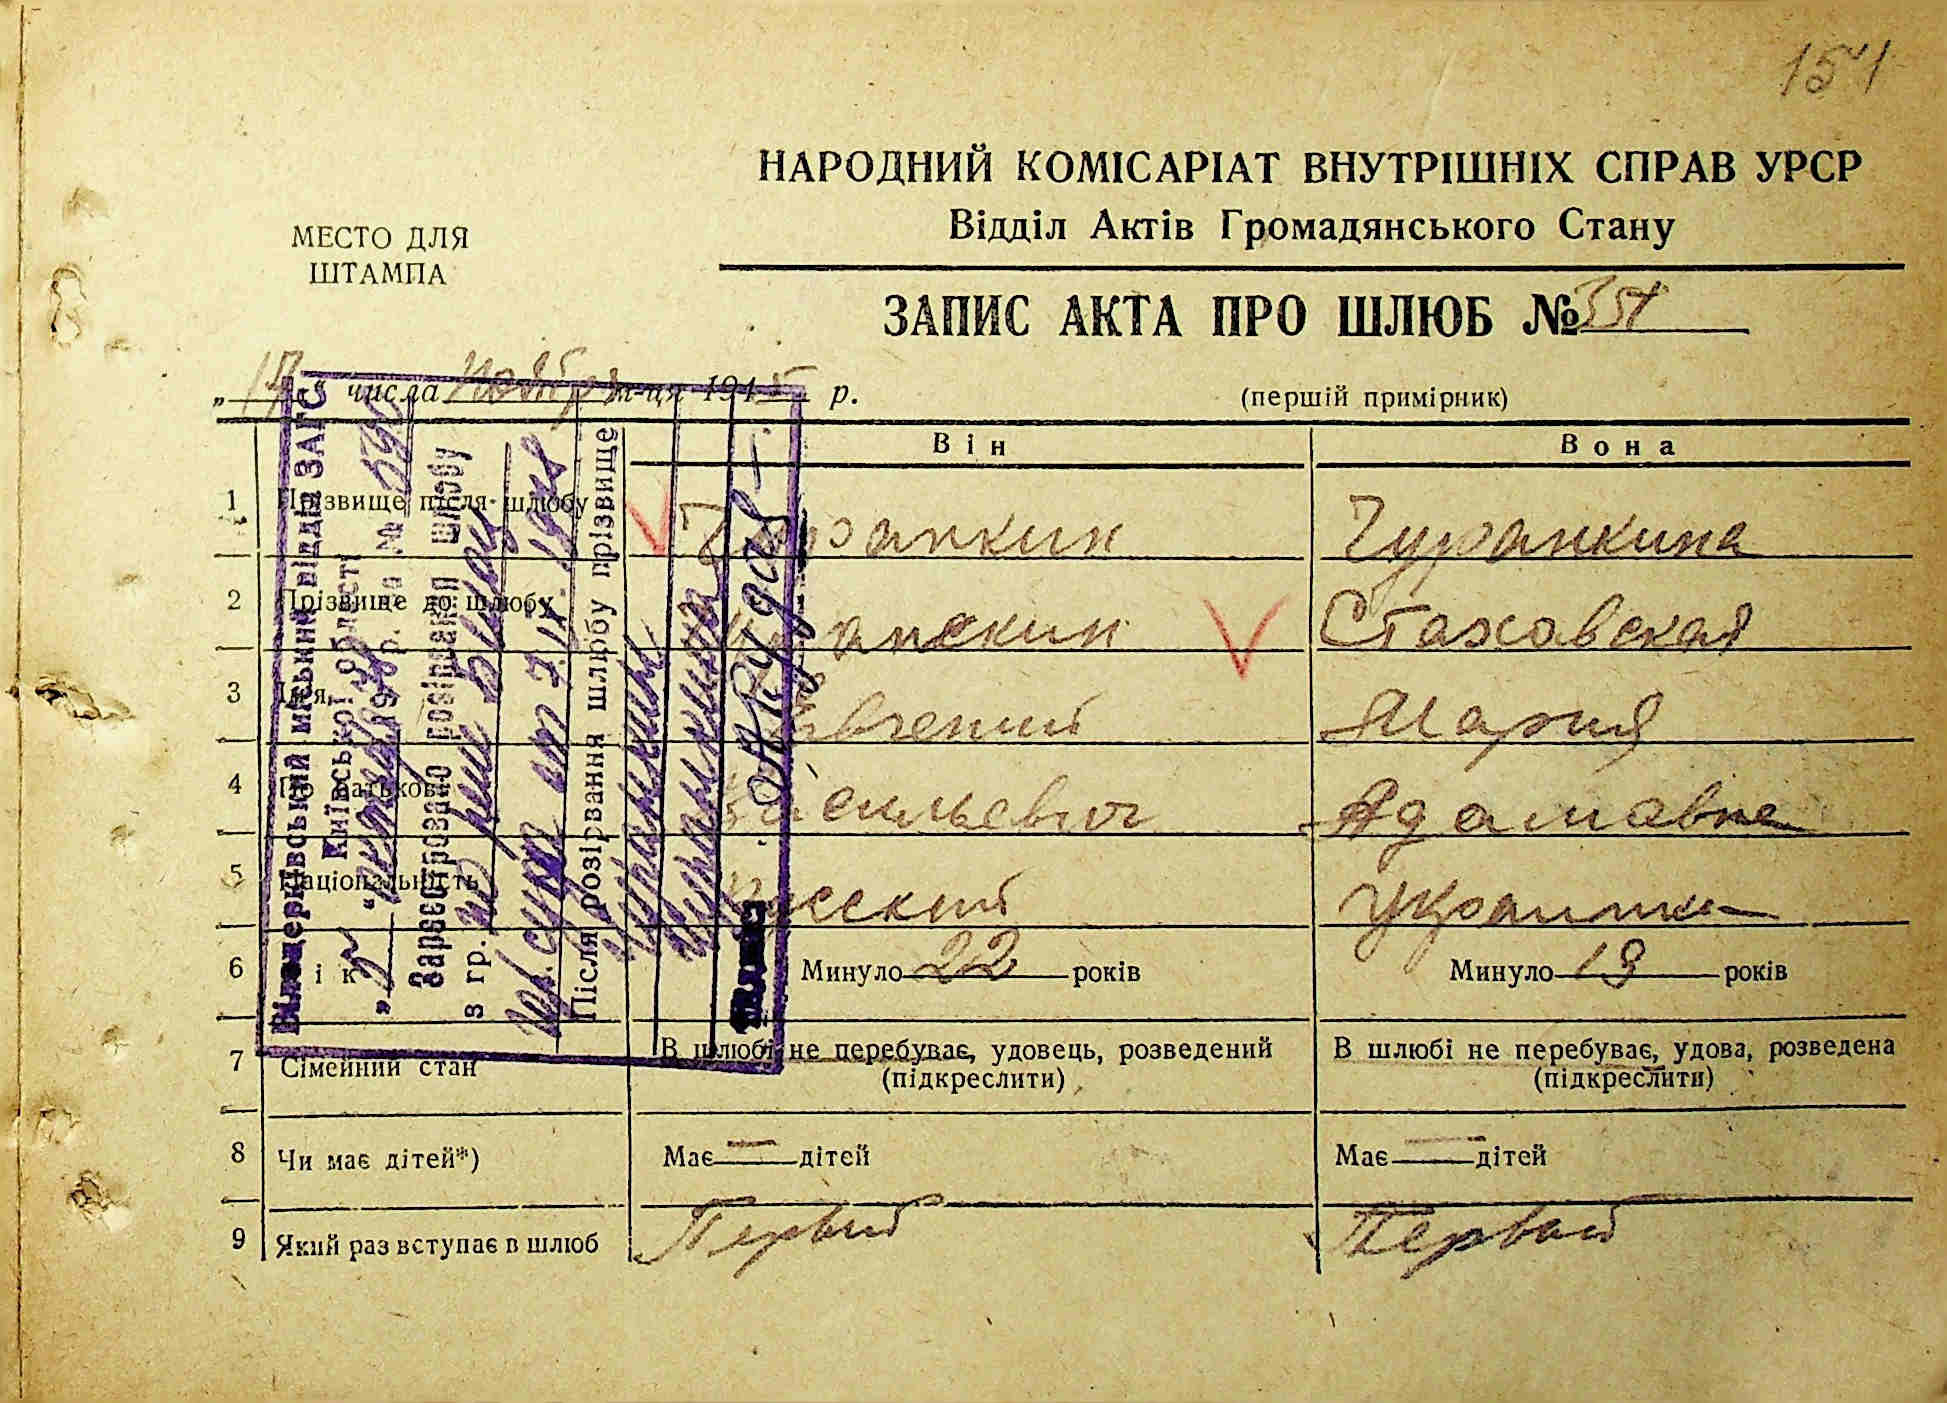 154
НАРОДНИЙ КОМІСАРІАТ ВНУТРІШНІХ СПРАВ УРСР
Відділ Актів Громадянського Стану
МЕСТО ДЛЯ
ШТАМПА
ЗАПИС АКТА ПРО ШЛЮБ № 354
„17“ числа Ноября м-ця 1945 р.
(перший примірник)
Він Вона
1 Прізвище після шлюбу Чуранкин Чуранкина
2 Прізвище до шлюбу Чуранкин Стаховская
3 Ім'я Евгений Мария
4 По батькові Васильевич Адамавна
5 Національність Русский Украинка
6 Вік Минуло 22 років Минуло 19 років
7 Сімейний стан В шлюбі не перебуває, удовець, розведений В шлюбі не перебуває, удова, розведена
(підкреслити) (підкреслити)
8 Чи має дітей*) Має — дітей Має — дітей
9 Який раз вступає в шлюб Первый Первый
Білоцерківський міський відділ ЗАГС
Київської області
Зареєстровано розірвання шлюбу
з гр.
Після розірвання шлюбу прізвище